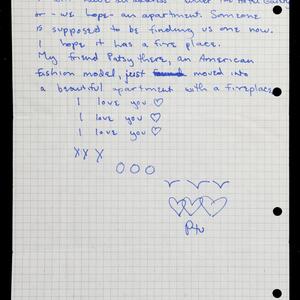 will have an address
or - we hope - an apartment. Someone
is supposed to be finding us one now.
I hope it has a fire place.
My friend Patsy there, an American
fashion model, just moved into
a beautiful apartment with a fireplace
I love you ♡
I love you ♡
I love you ♡
x x x
O O O